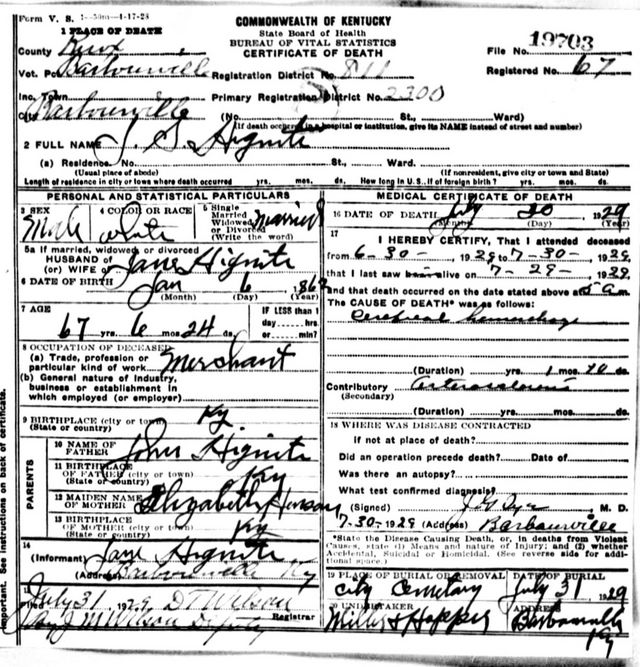 Form V. S. 1-50m-4-17-28
COMMONWEALTH OF KENTUCKY
State Board of Health
BUREAU OF VITAL STATISTICS
CERTIFICATE OF DEATH
1 PLACE OF DEATH
County Knox
File No. 19703
Vot. Pct. Barbourville Registration District No. 811 Registered No. 67
Inc. Town Primary Registration District No. 2300
City Barbourville (No. St., Ward)
(If death occurred in a hospital or institution, give its NAME instead of street and number)
2 FULL NAME J. S. Hignite
(a) Residence. No. St., Ward.
(Usual place of abode) (If nonresident, give city or town and State)
Length of residence in city or town where death occurred yrs. mos. ds. How long in U. S., if of foreign birth? yrs. mos. ds.
PERSONAL AND STATISTICAL PARTICULARS
3 SEX Male
4 COLOR OR RACE white
5 Single Married Widowed or Divorced (Write the word) Married
5a If married, widowed or divorced
HUSBAND OF (or) WIFE OF Jane Hignite
6 DATE OF BIRTH Jan 6 1862
(Month) (Day) (Year)
7 AGE 67 yrs. 6 mos. 24 ds.
IF LESS than 1 day......hrs. or......min?
8 OCCUPATION OF DECEASED
(a) Trade, profession or particular kind of work Merchant
(b) General nature of industry, business or establishment in which employed (or employer)
9 BIRTHPLACE (city or town) (State or country) Ky.
PARENTS
10 NAME OF FATHER John Hignite
11 BIRTHPLACE OF FATHER (city or town) (State or country) Ky
12 MAIDEN NAME OF MOTHER Elizabeth Henson
13 BIRTHPLACE OF MOTHER (city or town) (State or country) Ky
14 (Informant) Jane Hignite
(Address) Barbourville Ky
15 July 31 1929 D T Wilson
Registrar
M Wilson Deputy
MEDICAL CERTIFICATE OF DEATH
16 DATE OF DEATH July 30, 1929
(Month) (Day) (Year)
17
I HEREBY CERTIFY, That I attended deceased
from 6-30- 1929 to 7-30- 1929
that I last saw alive on 7-29- 1929
and that death occurred on the date stated above at 5 a m.
The CAUSE OF DEATH* was as follows:
Cerebral hemorrhage
(Duration) yrs. 1 mos. 20 ds.
Contributory (Secondary) arterosclerosis
(Duration) yrs. mos. ds.
18 WHERE WAS DISEASE CONTRACTED
If not at place of death?
Did an operation precede death? Date of
Was there an autopsy?
What test confirmed diagnosis?
(Signed) M. D.
7-30-1929 (Address) Barbourville
*State the Disease Causing Death, or, in deaths from Violent
Causes, state (1) Means and nature of Injury; and (2) whether
Accidental, Suicidal or Homicidal. (See reverse side for additional space.)
19 PLACE OF BURIAL OR REMOVAL City Cemetary
DATE OF BURIAL July 31 1929
20 UNDERTAKER Miller & Hopper
ADDRESS Barbourville Ky
Important. See instructions on back of certificate.